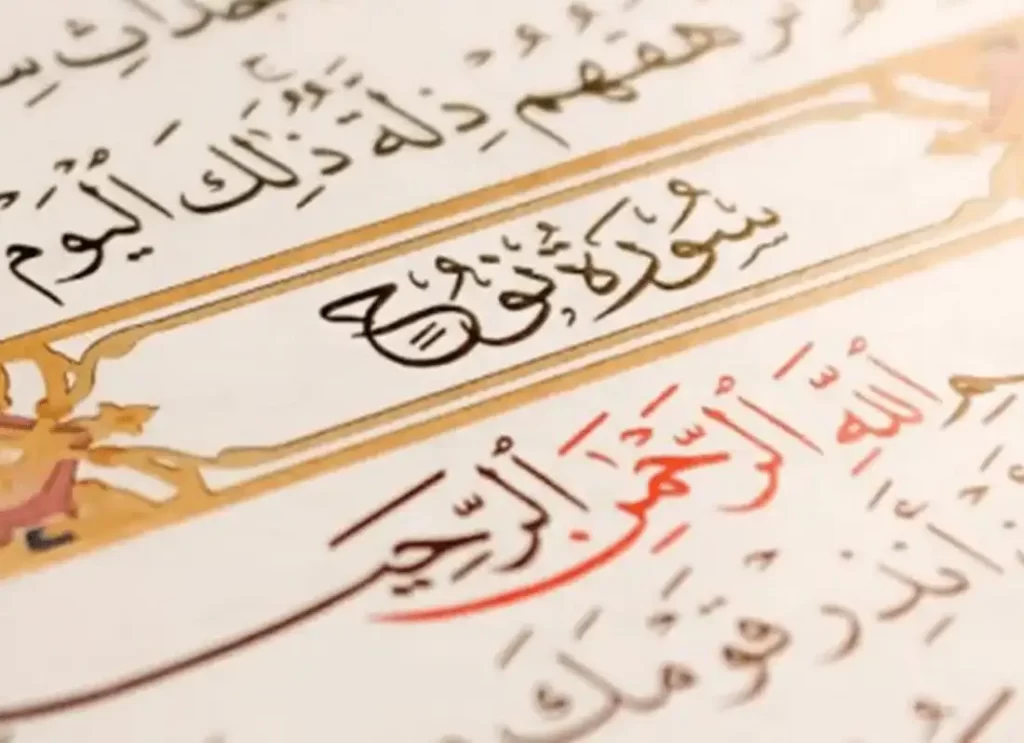 ترهقهم ذلة ذلك اليوم
سورة نوح
الله الرحمن الرحيم
أنذر قومك